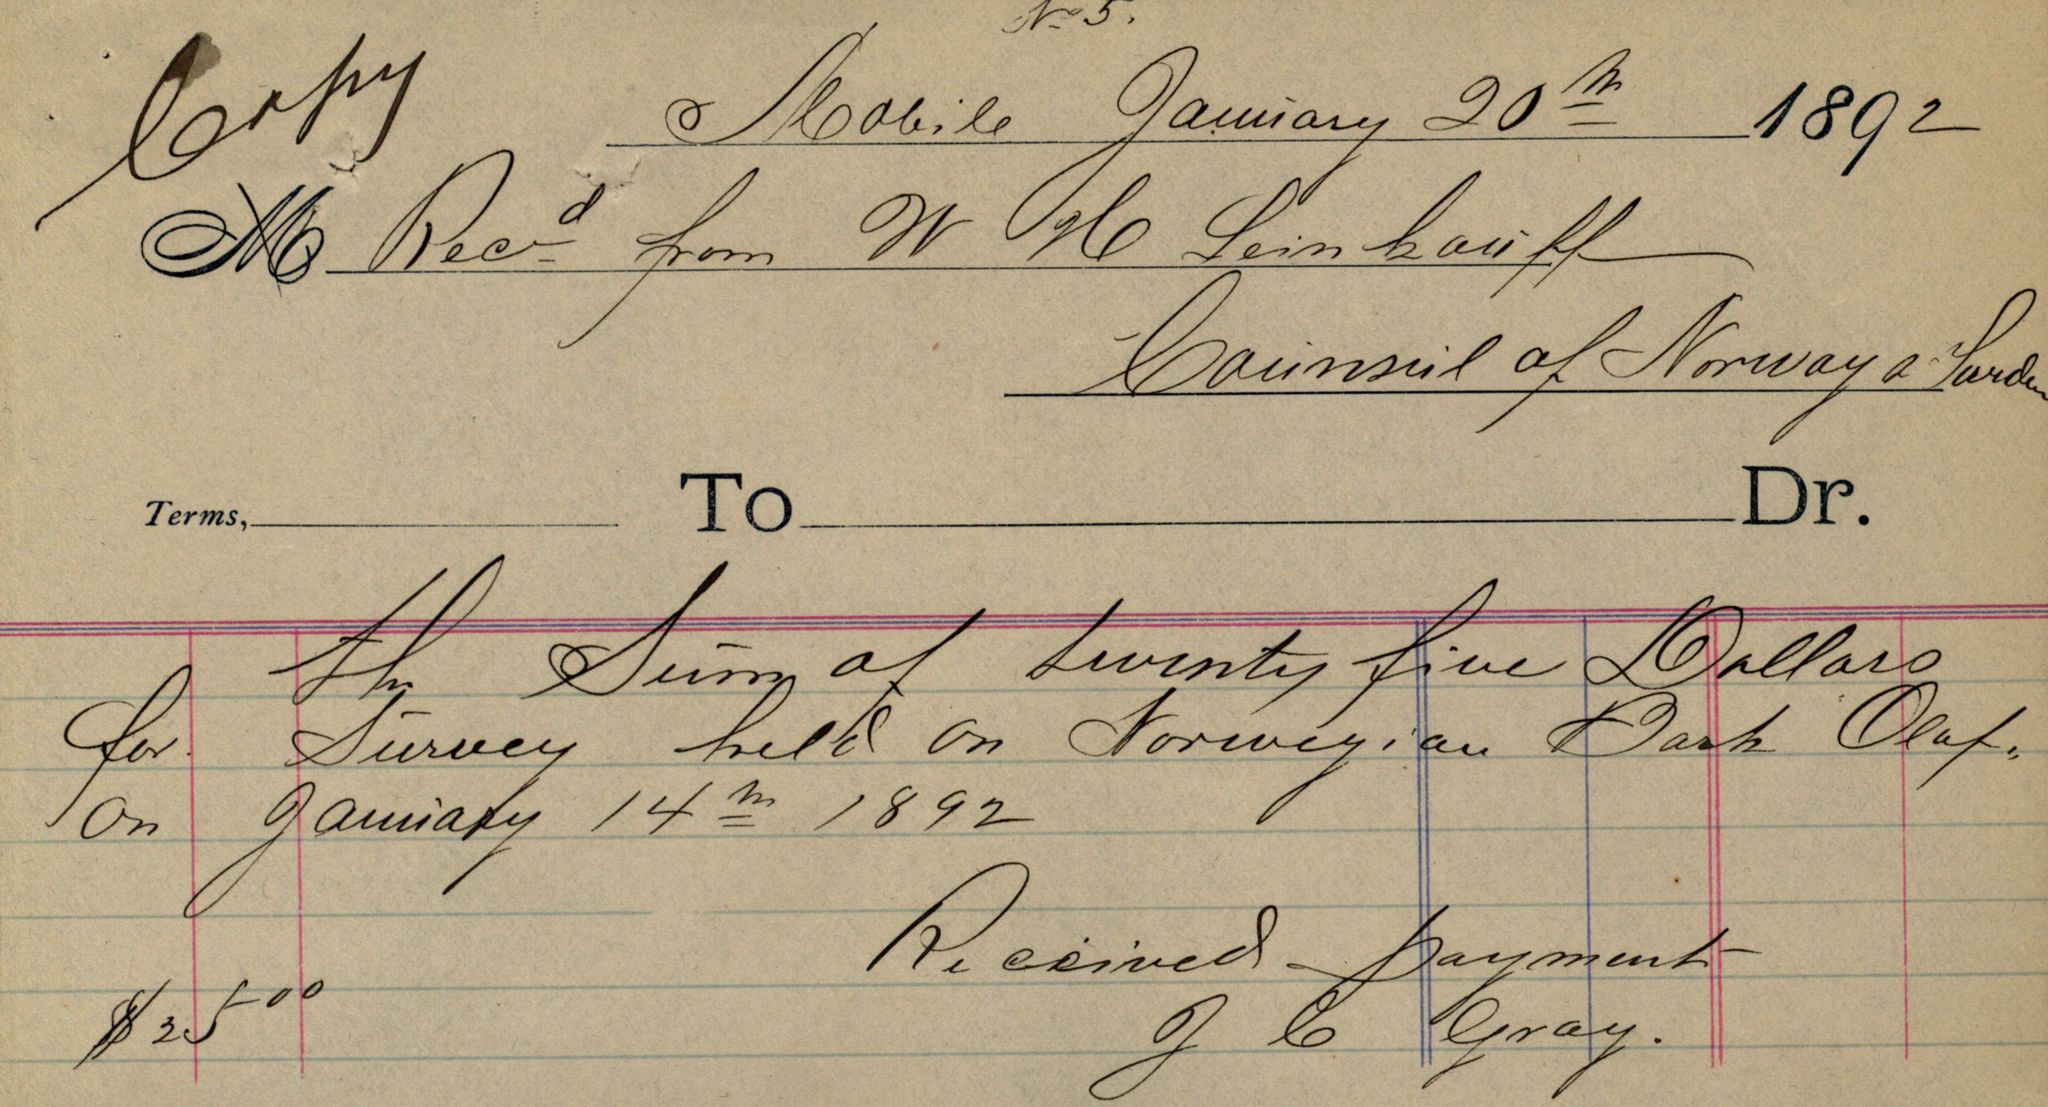 No 5.
Copy
Mobile January 20th 1892
M Recd from W H Leinkauff
Counsul of Norway & Sweden
Terms, To Dr.
the Sum of twenty five Dollars
for Survey held on Norwegian Bark Olaf.
on January 14th 1892
Received payment
$25 00
J C Gray.